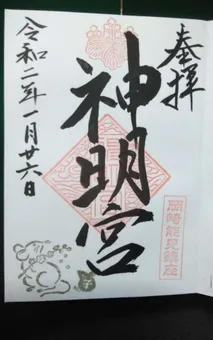 奉拝
神明宮
岡崎能見鎮座
令和二年一月廿六日
子